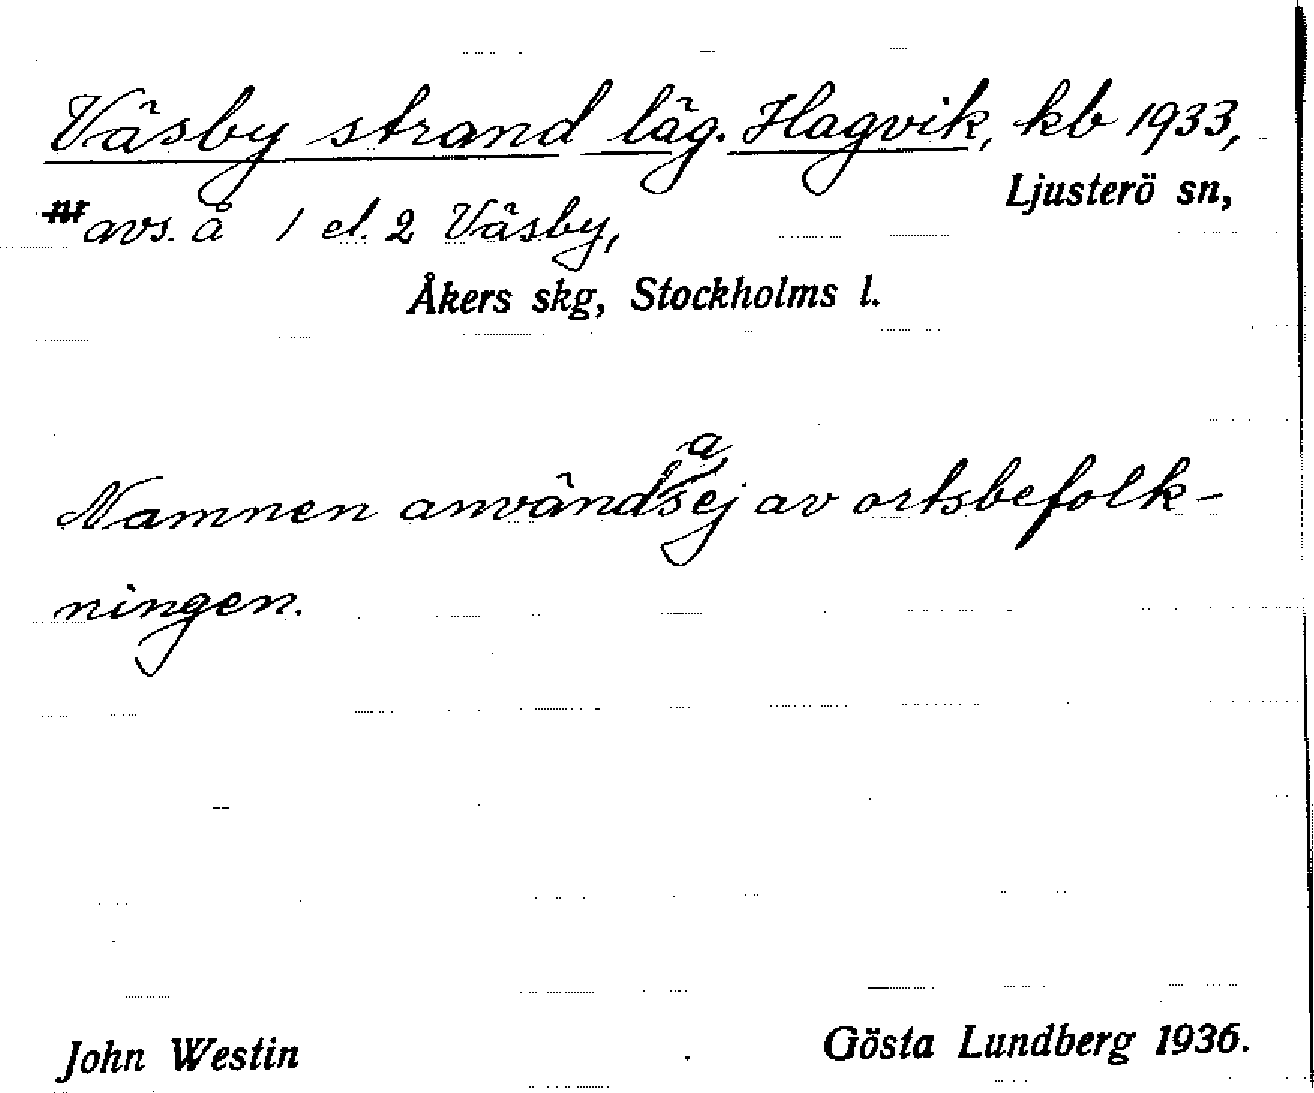 Väsby strand läg. Hagvik, kb 1933,
Ljusterö sn,
nr avs. å 1 el. 2 Väsby,
Åkers skg, Stockholms l.
Namnen användas ej av ortsbefolk-
ningen.
John Westin
Gösta Lundberg 1936.